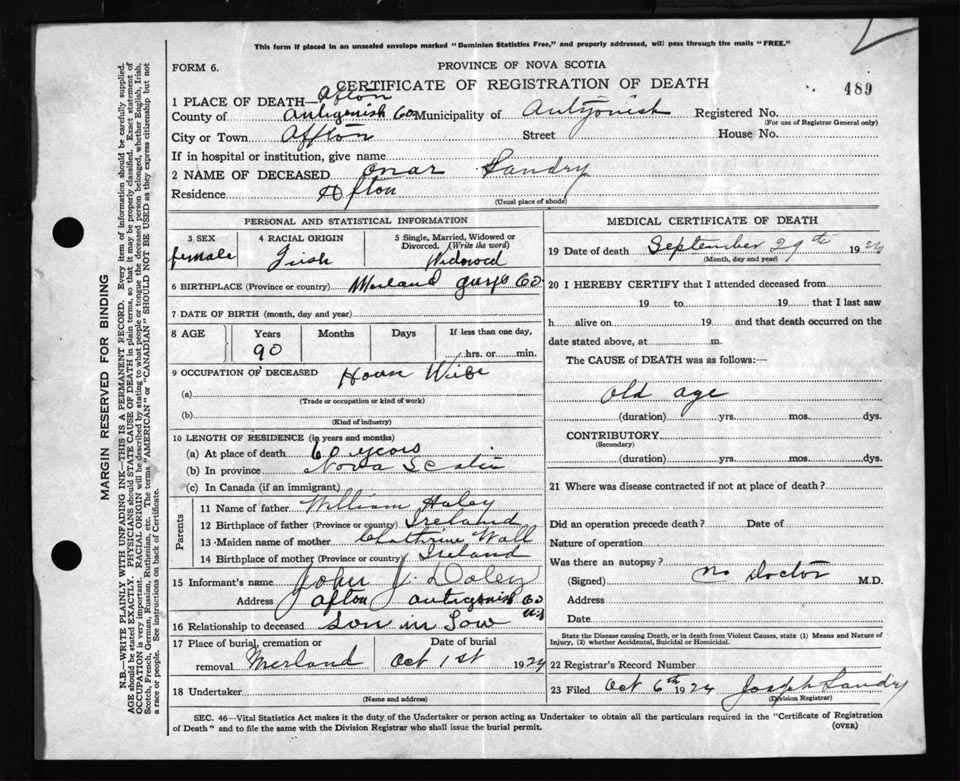 This form if placed in an unsealed envelope marked "Dominion Statistics Free," and properly addressed, will pass through the mails "FREE."
FORM 6.
PROVINCE OF NOVA SCOTIA
CERTIFICATE OF REGISTRATION OF DEATH
489
1 PLACE OF DEATH— Afton
County of Antigonish Co Municipality of Antigonish Registered No.
(For use of Registrar General only)
City or Town Affton Street House No.
If in hospital or institution, give name
2 NAME OF DECEASED Onar Landry
Residence Afton
(Usual place of abode)
PERSONAL AND STATISTICAL INFORMATION
3 SEX 4 RACIAL ORIGIN 5 Single, Married, Widowed or Divorced. (Write the word)
female Irish Widowed
6 BIRTHPLACE (Province or country) Merland Guys Co
7 DATE OF BIRTH (month, day and year)
8 AGE Years Months Days If less than one day,
90 hrs. or min.
9 OCCUPATION OF DECEASED Hous Wife
(a)
(Trade or occupation or kind of work)
(b)
(Kind of industry)
10 LENGTH OF RESIDENCE (in years and months)
(a) At place of death 60 years
(b) In province Nova Scotia
(c) In Canada (if an immigrant)
Parents
11 Name of father William Haley
12 Birthplace of father (Province or country) Ireland
13 Maiden name of mother Chathrine Wall
14 Birthplace of mother (Province or country) Ireland
15 Informant's name John J. Daley
Address Afton Antigonish Co
16 Relationship to deceased Son in Low
17 Place of burial, cremation or removal Merland
Date of burial Oct 1st 1924
18 Undertaker
(Name and address)
MEDICAL CERTIFICATE OF DEATH
19 Date of death September 29th 192
(Month, day and year)
20 I HEREBY CERTIFY that I attended deceased from
19 to 19 that I last saw
h alive on 19 and that death occurred on the
date stated above, at m.
The CAUSE of DEATH was as follows:—
old age
(duration) yrs. mos. dys.
CONTRIBUTORY
(Secondary)
(duration) yrs. mos. dys.
21 Where was disease contracted if not at place of death?
Did an operation precede death? Date of
Nature of operation
Was there an autopsy?
(Signed) No Doctor M.D.
Address
Date
State the Disease causing Death, or in death from Violent Causes, state (1) Means and Nature of
Injury, (2) whether Accidental, Suicidal or Homicidal.
22 Registrar's Record Number
23 Filed Oct 6th 1924 Joseph Landry
(Division Registrar)
SEC. 46—Vital Statistics Act makes it the duty of the Undertaker or person acting as Undertaker to obtain all the particulars required in the "Certificate of Registration
of Death" and to file the same with the Division Registrar who shall issue the burial permit.
(OVER)
MARGIN RESERVED FOR BINDING
N.B.—WRITE PLAINLY WITH UNFADING INK—THIS IS A PERMANENT RECORD. Every item of information should be carefully supplied.
AGE should be stated EXACTLY. PHYSICIANS should STATE CAUSE OF DEATH in plain terms, so that it may be properly classified. Exact statement of
OCCUPATION is very important. RACIAL ORIGIN will be described by stating to what people or tongue the deceased person belonged, whether English, Irish,
Scotch, French, German, Russian, Ruthenian, etc. The terms "AMERICAN" or "CANADIAN" SHOULD NOT BE USED as they express citizenship but not
a race or people. See instructions on back of Certificate.